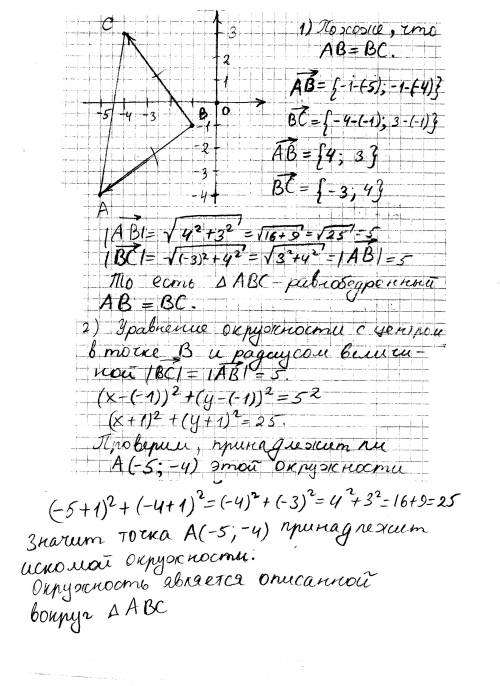 C
3
2
1
-5 -4 -3 B O
-1
-2
-3
-4
A
1) Похоже, что
AB = BC.
AB = {-1-(-5); -1-(-4)}
BC = {-4-(-1); 3-(-1)}
AB = {4; 3}
BC = {-3; 4}
|AB| = √4²+3² = √16+9 = √25 = 5
|BC| = √(-3)²+4² = √3²+4² = |AB| = 5
То есть △ABC - равнобедренный
AB = BC.
2) Уравнение окружности с центром
в точке B и радиусом величи-
ной |BC| = |AB| = 5.
(x-(-1))² + (y-(-1))² = 5²
(x+1)² + (y+1)² = 25.
Проверим, принадлежит ли
A(-5; -4) этой окружности
(-5+1)² + (-4+1)² = (-4)² + (-3)² = 4² + 3² = 16+9 = 25
Значит точка A(-5; -4) принадлежит
искомой окружности.
Окружность является описанной
вокруг △ABC